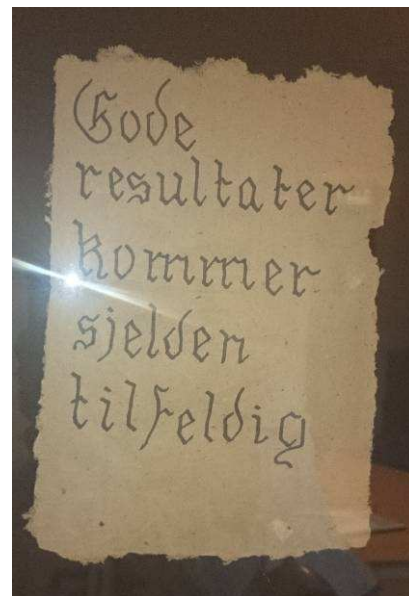 Gode
resultater
kommer
sjelden
tilfeldig